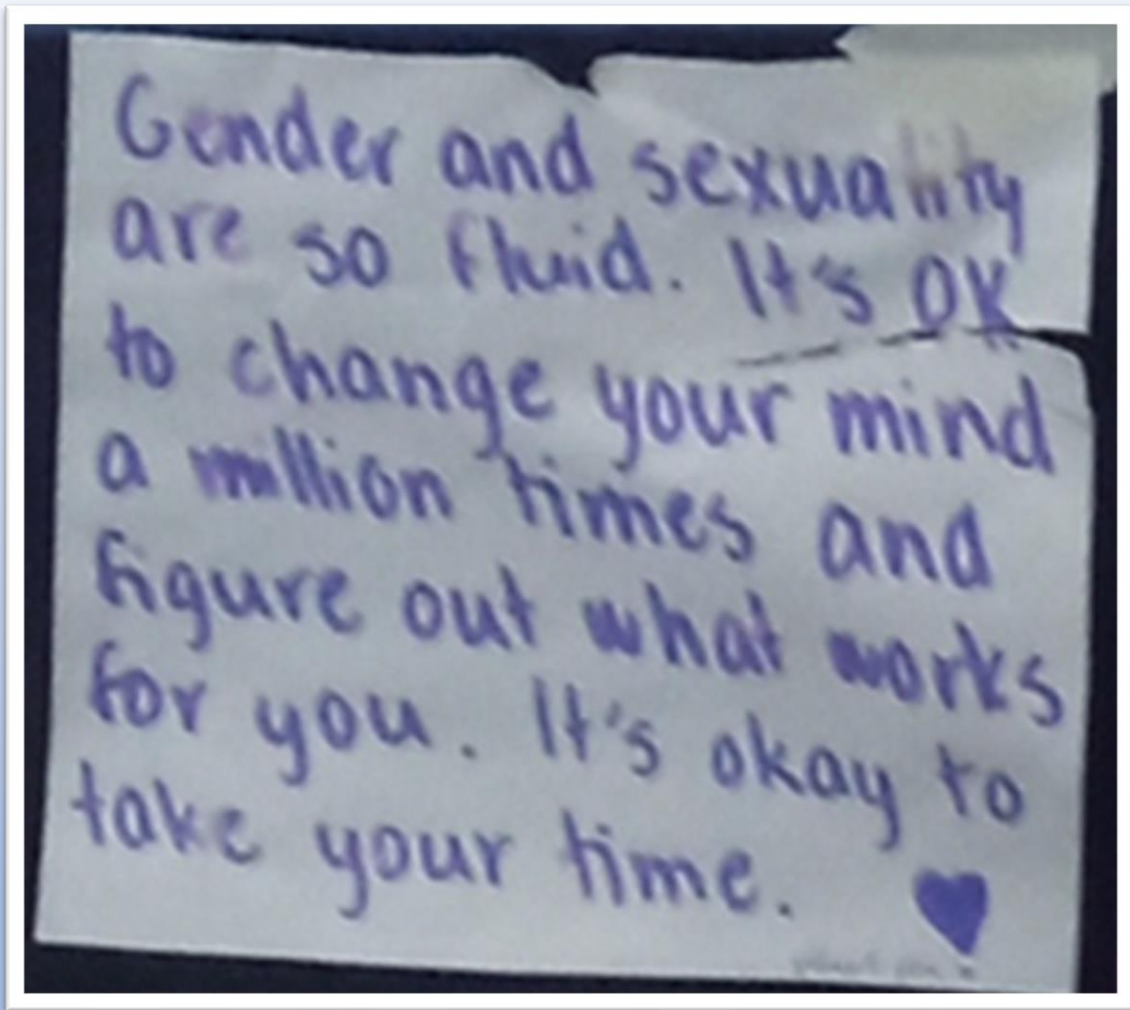 Gender and sexuality
are so fluid. It's OK
to change your mind
a million times and
figure out what works
for you. It's okay to
take your time. ♥